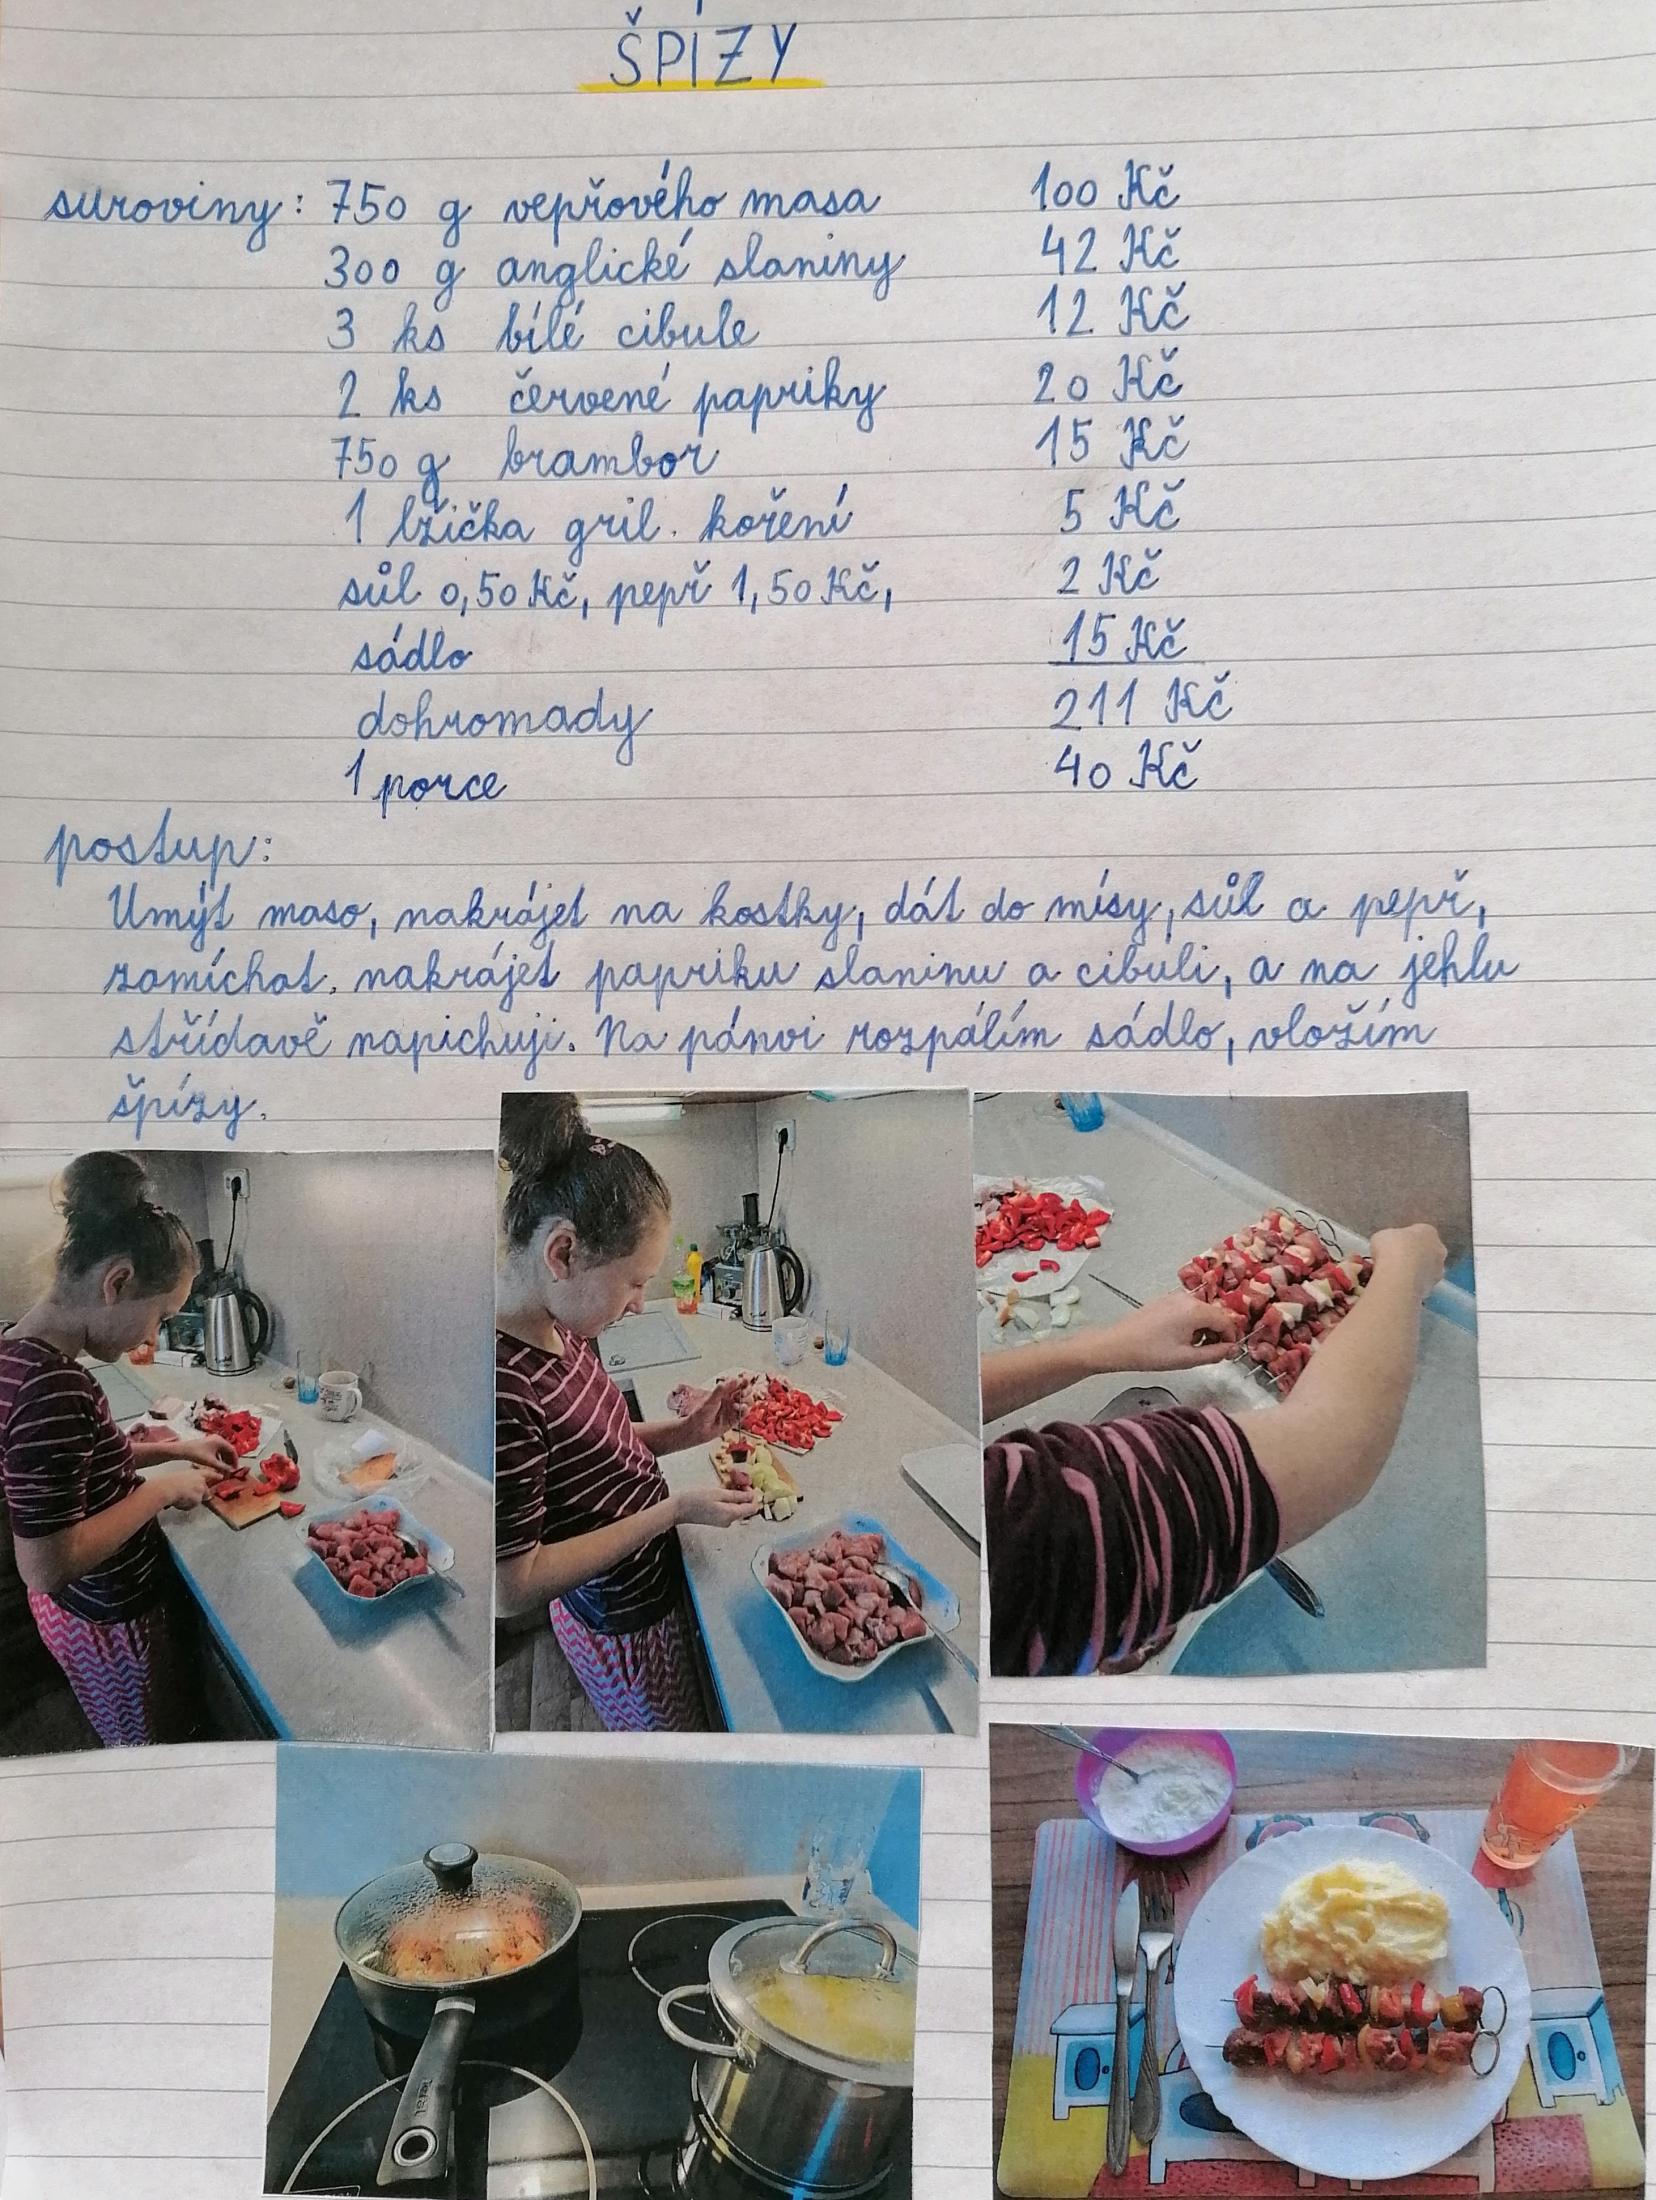 ŠPÍZY
suroviny: 750 g vepřového masa 100 Kč
300 g anglické slaniny 42 Kč
3 ks bílé cibule 12 Kč
2 ks červené papriky 20 Kč
750 g brambor 15 Kč
1 lžička gril. koření 5 Kč
sůl 0,50 Kč, pepř 1,50 Kč, 2 Kč
sádlo 15 Kč
dohromady 211 Kč
1 porce 40 Kč
postup:
Umýt maso, nakrájet na kostky, dát do mísy, sůl a pepř,
zamíchat. nakrájet papriku slaninu a cibuli, a na jehlu
střídavě napichuji. Na pánvi rozpálím sádlo, vložím
špízy.
Tefal